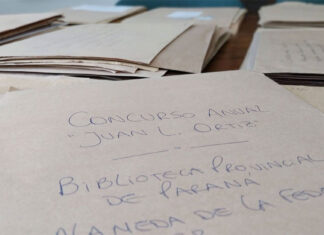 CONCURSO ANUAL
"JUAN L. ORTIZ"
BIBLIOTECA PROVINCIAL
DE PARANÁ
ALAMEDA DE LA